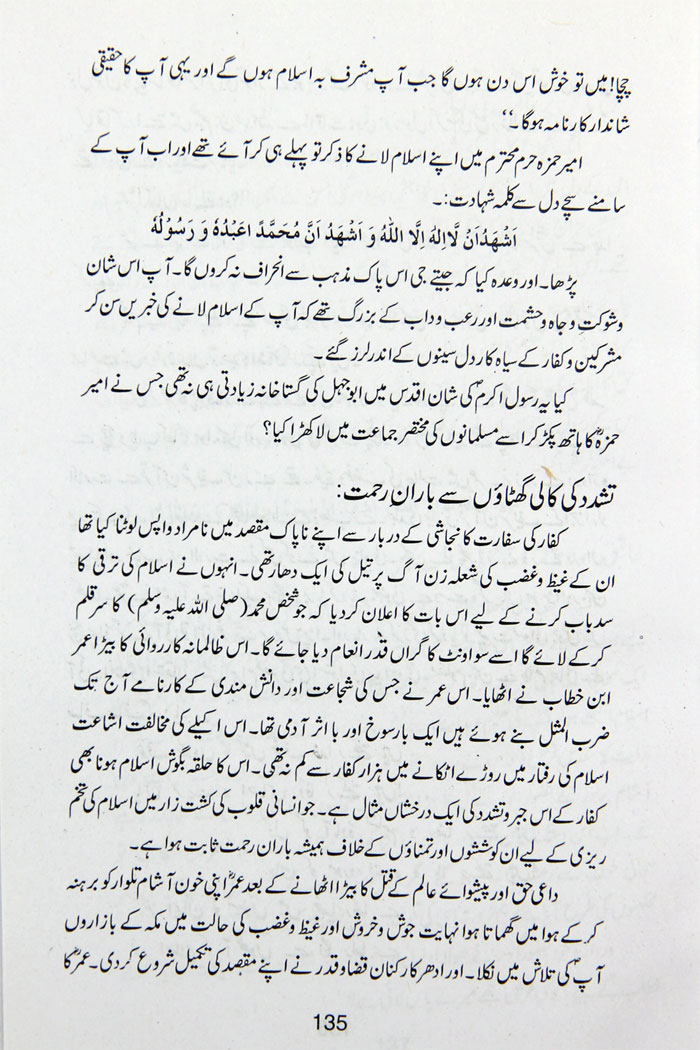 چچا! میں تو خوش اس دن ہوں گا جب آپ مشرف بہ اسلام ہوں گے اور یہی آپ کا حقیقی
شاندار کارنامہ ہوگا۔‘‘
امیر حمزہ حرم محترم میں اپنے اسلام لانے کا ذکر تو پہلے ہی کر آئے تھے اور اب آپ کے
سامنے سچے دل سے کلمہ شہادت:۔
اَشْهَدُاَنْ لَّااِلٰهَ اِلَّا اللّٰهُ وَ اَشْهَدُ اَنَّ مُحَمَّدً اعَبْدُهٗ وَ رَسُوْلُهٗ
پڑھا۔ اور وعدہ کیا کہ جیتے جی اس پاک مذہب سے انحراف نہ کروں گا۔ آپ اس شان
وشوکت و جاہ و حشمت اور رعب و داب کے بزرگ تھے کہ آپ کے اسلام لانے کی خبریں سن کر
مشرکین و کفار کے سیاہ کار دل سینوں کے اندر لرز گئے۔
کیا یہ رسول اکرمؐ کی شان اقدس میں ابوجہل کی گستاخانہ زیادتی ہی نہ تھی جس نے امیر
حمزہؓ کا ہاتھ پکڑ کر اسے مسلمانوں کی مختصر جماعت میں لا کھڑا کیا؟
تشدد کی کالی گھٹاؤں سے باران رحمت:
کفار کی سفارت کا نجاشی کے دربار سے اپنے ناپاک مقصد میں نامراد واپس لوٹنا کیا تھا
ان کے غیظ و غضب کی شعلہ زن آگ پر تیل کی ایک دھار تھی۔ انہوں نے اسلام کی ترقی کا
سدباب کرنے کے لیے اس بات کا اعلان کر دیا کہ جو شخص محمد (صلی اللہ علیہ وسلم) کا سر قلم
کر کے لائے گا اسے سو اونٹ کا گراں قدر انعام دیا جائے گا۔ اس ظالمانہ کارروائی کا بیڑا عمر
ابن خطاب نے اٹھایا۔ اس عمر نے جس کی شجاعت اور دانش مندی کے کارنامے آج تک
ضرب المثل بنے ہوئے ہیں ایک بارسوخ اور با اثر آدمی تھا۔ اس اکیلے کی مخالفت اشاعت
اسلام کی رفتار میں روڑے اٹکانے میں ہزار کفار سے کم نہ تھی۔ اس کا حلقہ بگوش اسلام ہونا بھی
کفار کے اس جبر و تشدد کی ایک درخشاں مثال ہے۔ جو انسانی قلوب کی کشت زار میں اسلام کی تخم
ریزی کے لیے ان کوششوں اور تمناؤں کے خلاف ہمیشہ باران رحمت ثابت ہوا ہے۔
داعی حق اور پیشوائے عالم کے قتل کا بیڑا اٹھانے کے بعد عمرؓ اپنی خون آشام تلوار کو برہنہ
کر کے ہوا میں گھماتا ہوا نہایت جوش و خروش اور غیظ و غضب کی حالت میں مکہ کے بازاروں
آپؐ کی تلاش میں نکلا۔ اور ادھر کارکنان قضا و قدر نے اپنے مقصد کی تکمیل شروع کر دی۔ عمرؓ کا
135